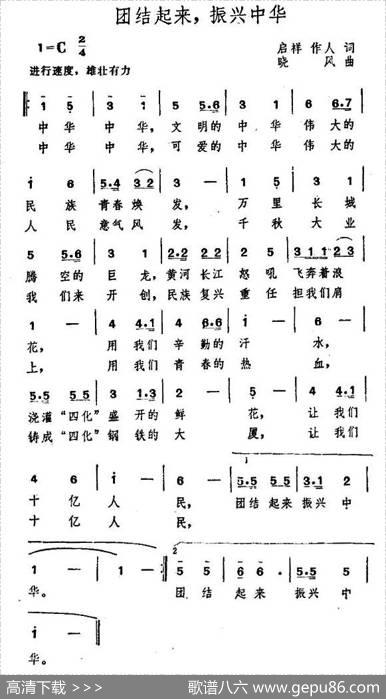 团结起来，振兴中华
1=C 2/4
启祥 作人 词
进行速度，雄壮有力
晓 风 曲
1 5 | 3 1 | 5 5·6 | 3 1 | 6 6·7 |
中华 中华，文明的 中华 伟大的
中华 中华，可爱的 中华 伟大的
i 6 | 5·4 3 2 | 3 — | 1 5 | 3 1 |
民族 青春焕发， 万里 长城
人民 意气风发， 千秋 大业
5 5·6 | 3 1 | 2·2 2 2 | 6 5 | 3 1 1 2 3 |
腾空的 巨龙，黄河长江 怒吼 飞奔着浪
我们来 开创，民族复兴 重任 担我们肩
1 — | 4 4·1 | 4 6·6 | i — | 6 — |
花， 用我们 辛勤的 汗 水，
上， 用我们 青春的 热 血，
5·5 5 5 | 3 1·3 | 2 — | 5 — | 4 4·1 |
浇灌“四化”盛开的鲜 花，让我们
铸成“四化”钢铁的大 厦，让我们
4 6 | i — | 6 — | 5·5 5 5 | 3·1 2 |
十亿 人 民，团结起来 振兴中
十亿 人 民，
1 — | 1 — :| 5 5 | 6 6· | 5·5 5 |
华。 团结 起来 振兴中
i — ||
华。
高清下载 >>>
歌谱八六 www.gepu86.com